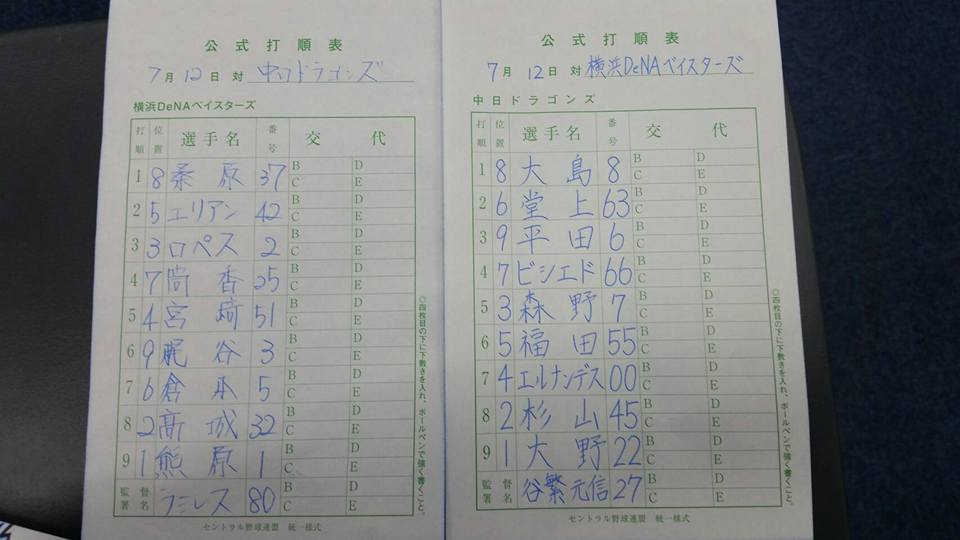 公式打順表
7月12日 対 中日ドラゴンズ
横浜DeNAベイスターズ
打順 位置 選手名 番号 交代
1 8 桑原 37 B C D E
2 5 エリアン 42 B C D E
3 3 ロペス 2 B C D E
4 7 筒香 25 B C D E
5 4 宮﨑 51 B C D E
6 9 梶谷 3 B C D E
7 6 倉本 5 B C D E
8 2 高城 32 B C D E
9 1 熊原 1 B C D E
監督署名 ラミレス 80 B C D E
◎四枚目の下に下敷きを入れ、ボールペンで強く書くこと。
セントラル野球連盟 統一様式
公式打順表
7月12日 対 横浜DeNAベイスターズ
中日ドラゴンズ
打順 位置 選手名 番号 交代
1 8 大島 8 B C D E
2 6 堂上 63 B C D E
3 9 平田 6 B C D E
4 7 ビシエド 66 B C D E
5 3 森野 7 B C D E
6 5 福田 55 B C D E
7 4 エルナンデス 00 B C D E
8 2 杉山 45 B C D E
9 1 大野 22 B C D E
監督署名 谷繁元信 27 B C D E
◎四枚目の下に下敷きを入れ、ボールペンで強く書くこと。
セントラル野球連盟 統一様式